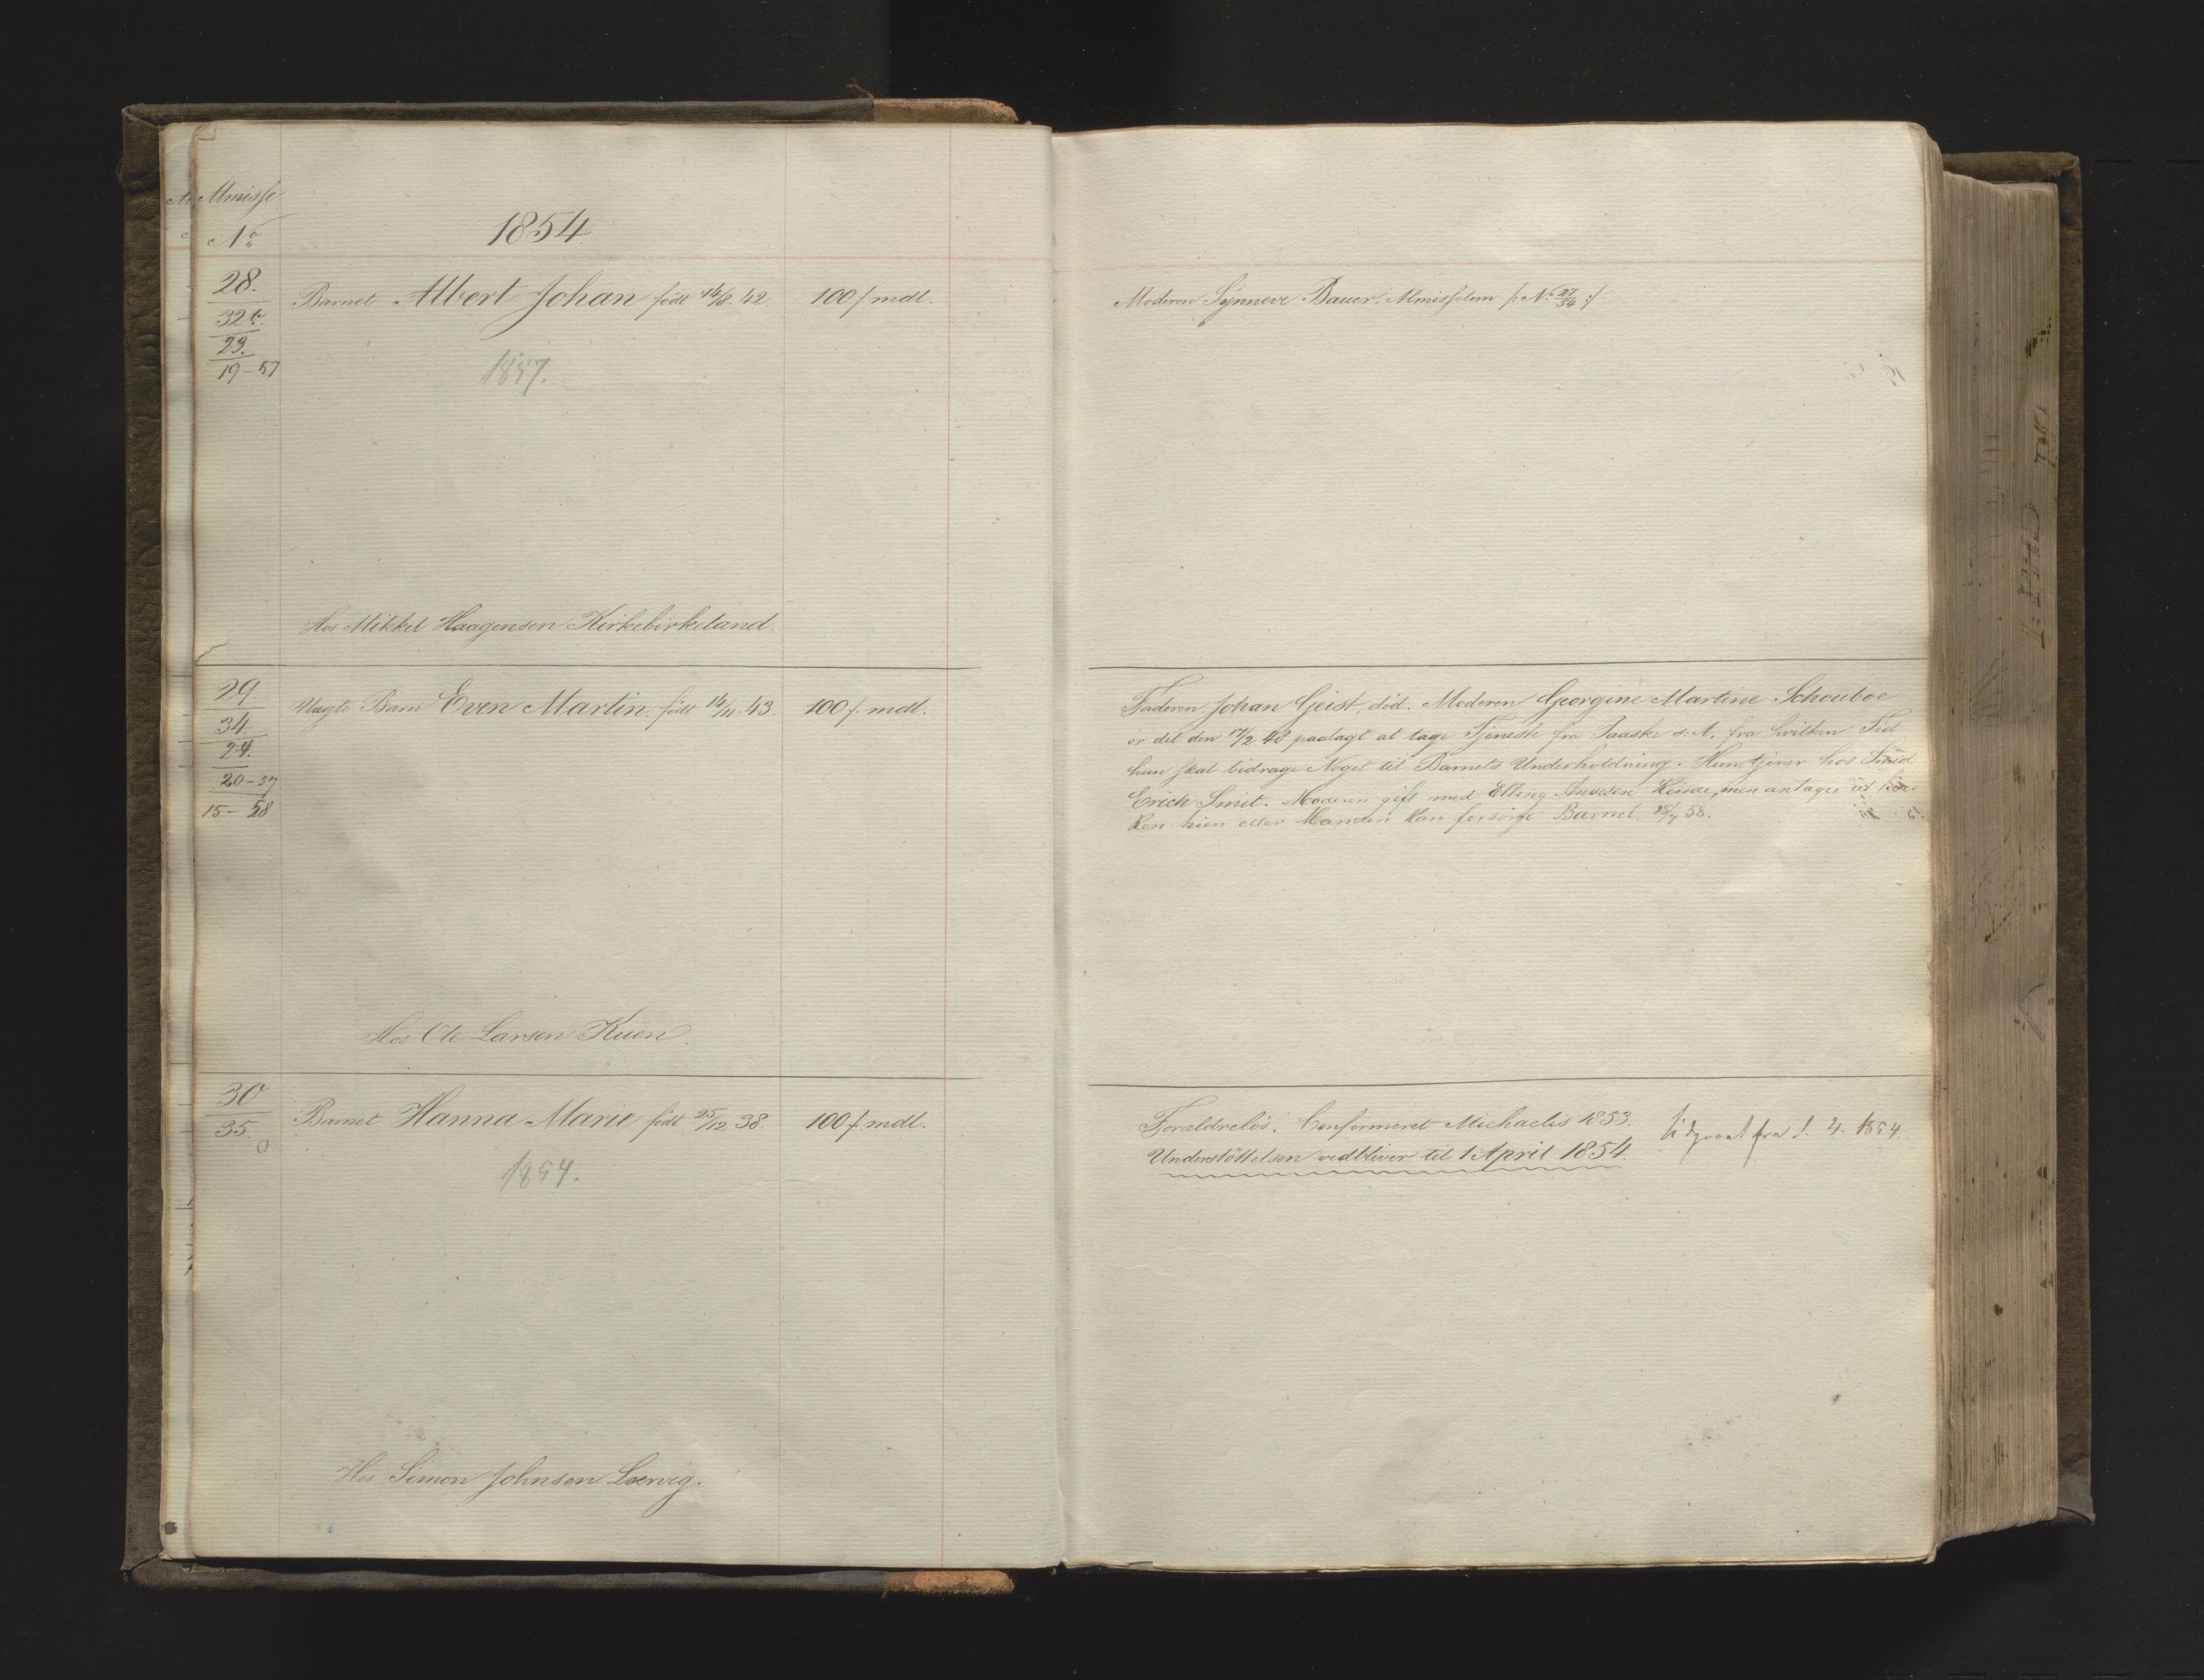 Almisse
No
1854.
28.
32 b.
23.
19-57
Barnet Albert Johan født 14/8. 42.
100 ſ mdl.
Moderen Synneve Bauer. Almisselem /: No 27/54 :/
1857.
Hos Mikkel Haagensen Kirkebirkeland.
29.
34.
24.
20-57
15-58
Uægte Barn Even Martin, født 14/11. 43.
100 ſ. mdl.
Faderen Johan Geist, död. Moderen Georgine Martine Schouboe
er det den 17/2 48 paalagt at tage Tjeneste fra Paaske s: A. fra hvilken Tid
hun skal bidrage Noget til Barnets Underholdning. Hun tjener hos Smed
Erich Smit. Moderen gift med Elling Knudsen men antages ei
ken hun eller Manden kan forsörge Barnet. 58.
Hos Ole Larsen Kuen.
30
35.
0
Barnet Hanna Marie født 25/12 38.
100 ſ. mdl.
Forældrelös. Confirmeret Michaelis 1853.
Understöttelsen vedbliver til 1 April 1854.
Udgaaet fra 1. 4. 1854.
1854.
Hos Simon Johnsen Leervig.